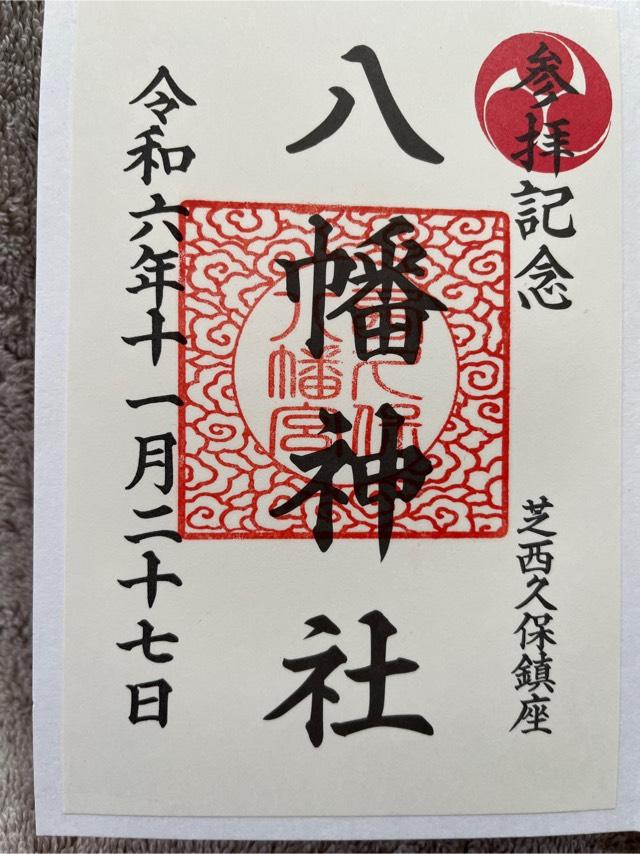 参拝記念
芝西久保鎮座
八幡神社
西久保
八幡宮
令和六年十一月二十七日